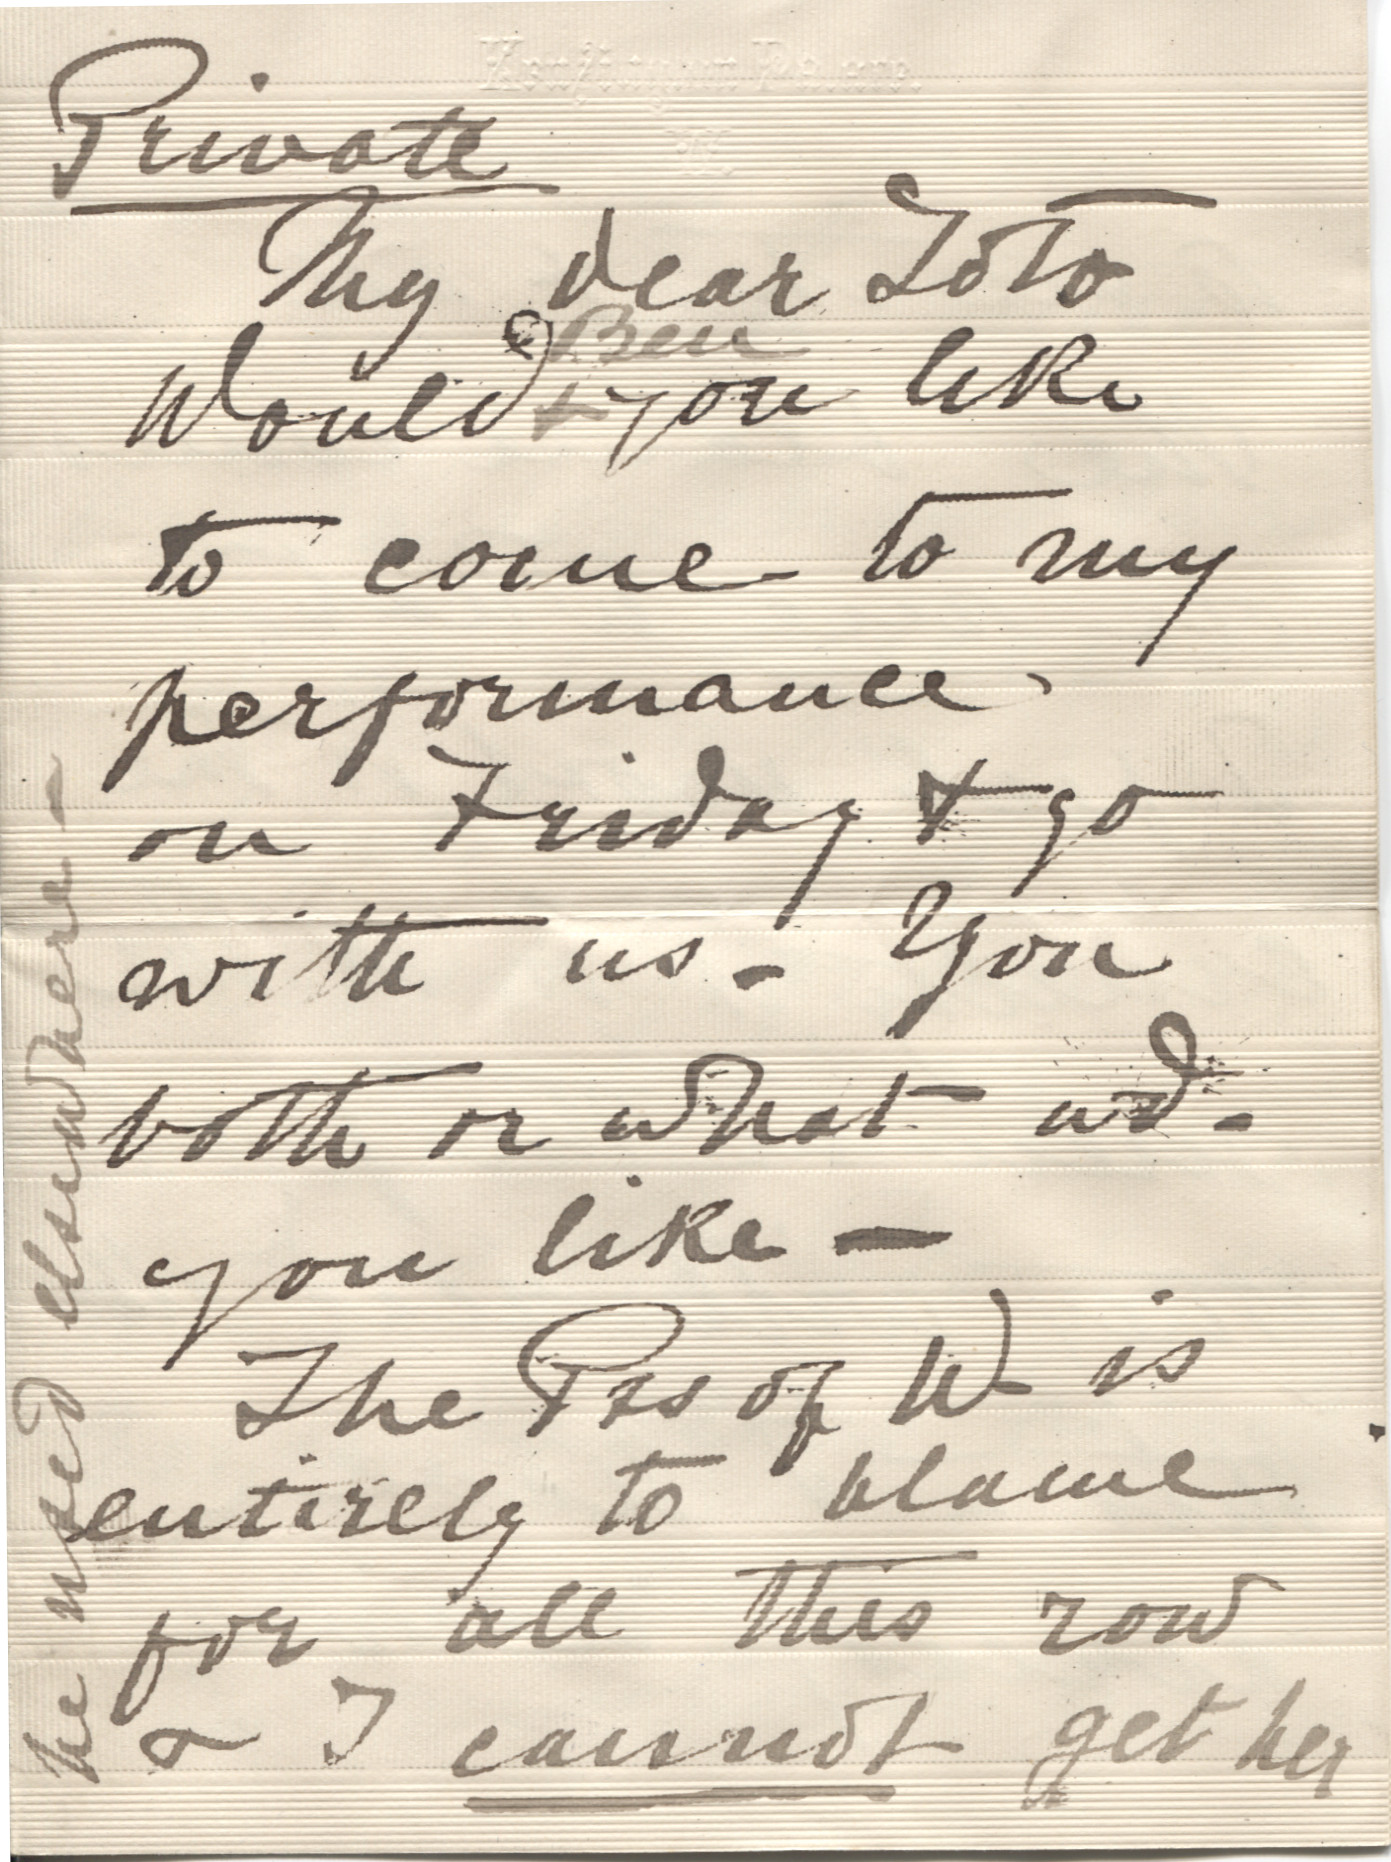 Kensington Palace.
W.
Private
My dear Toto
Ben
Would & you like
to come to my
performance
on Friday & go
with us. You
both or what wd.
you like —
The Pss of W is
entirely to blame
for all this row
& I cannot get her
be used elsewhere –